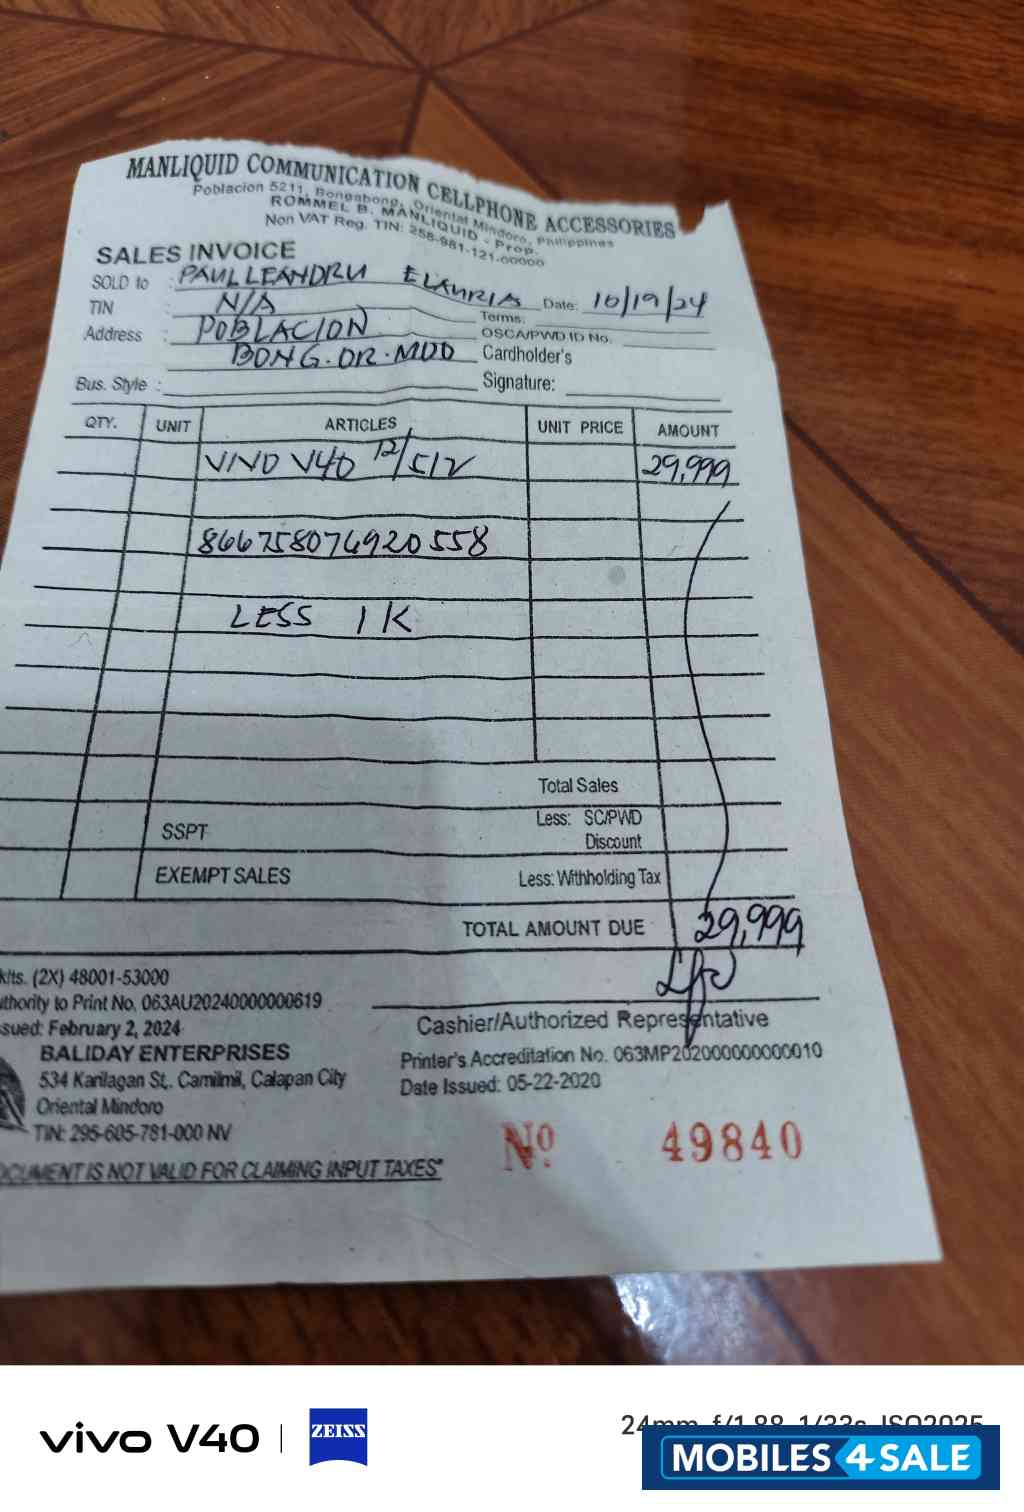 MANLIQUID COMMUNICATION CELLPHONE ACCESSORIES
Poblacion 5211, Bongabong, Oriental Mindoro, Philippines
ROMMEL B. MANLIQUID - Prop.
Non VAT Reg. TIN: 258-981-121-00000
SALES INVOICE
SOLD to : PAUL LEANDRU ELAURIA Date: 10/19/24
TIN : N/A Terms:
Address : POBLACION OSCA/PWD ID No.
BONG. OR. MDO Cardholder's
Bus. Style : Signature:
QTY. UNIT ARTICLES UNIT PRICE AMOUNT
VIVO V40 12/512 29,999
866758074920558
LESS 1K
Total Sales
SSPT Less: SC/PWD
Discount
EXEMPT SALES Less: Withholding Tax
TOTAL AMOUNT DUE 29,999
klts. (2X) 48001-53000
uthority to Print No. 063AU20240000000619
ssued: February 2, 2024
Cashier/Authorized Representative
BALIDAY ENTERPRISES
534 Karilagan St,. Camilmil, Calapan City
Oriental Mindoro
TIN: 295-605-781-000 NV
Printer's Accreditation No. 063MP202000000000010
Date Issued: 05-22-2020
Nº 49840
OCUMENT IS NOT VALID FOR CLAIMING INPUT TAXES"
vivo V40 | ZEISS
24mm f/1.88 1/33s ISO2025
MOBILES4SALE